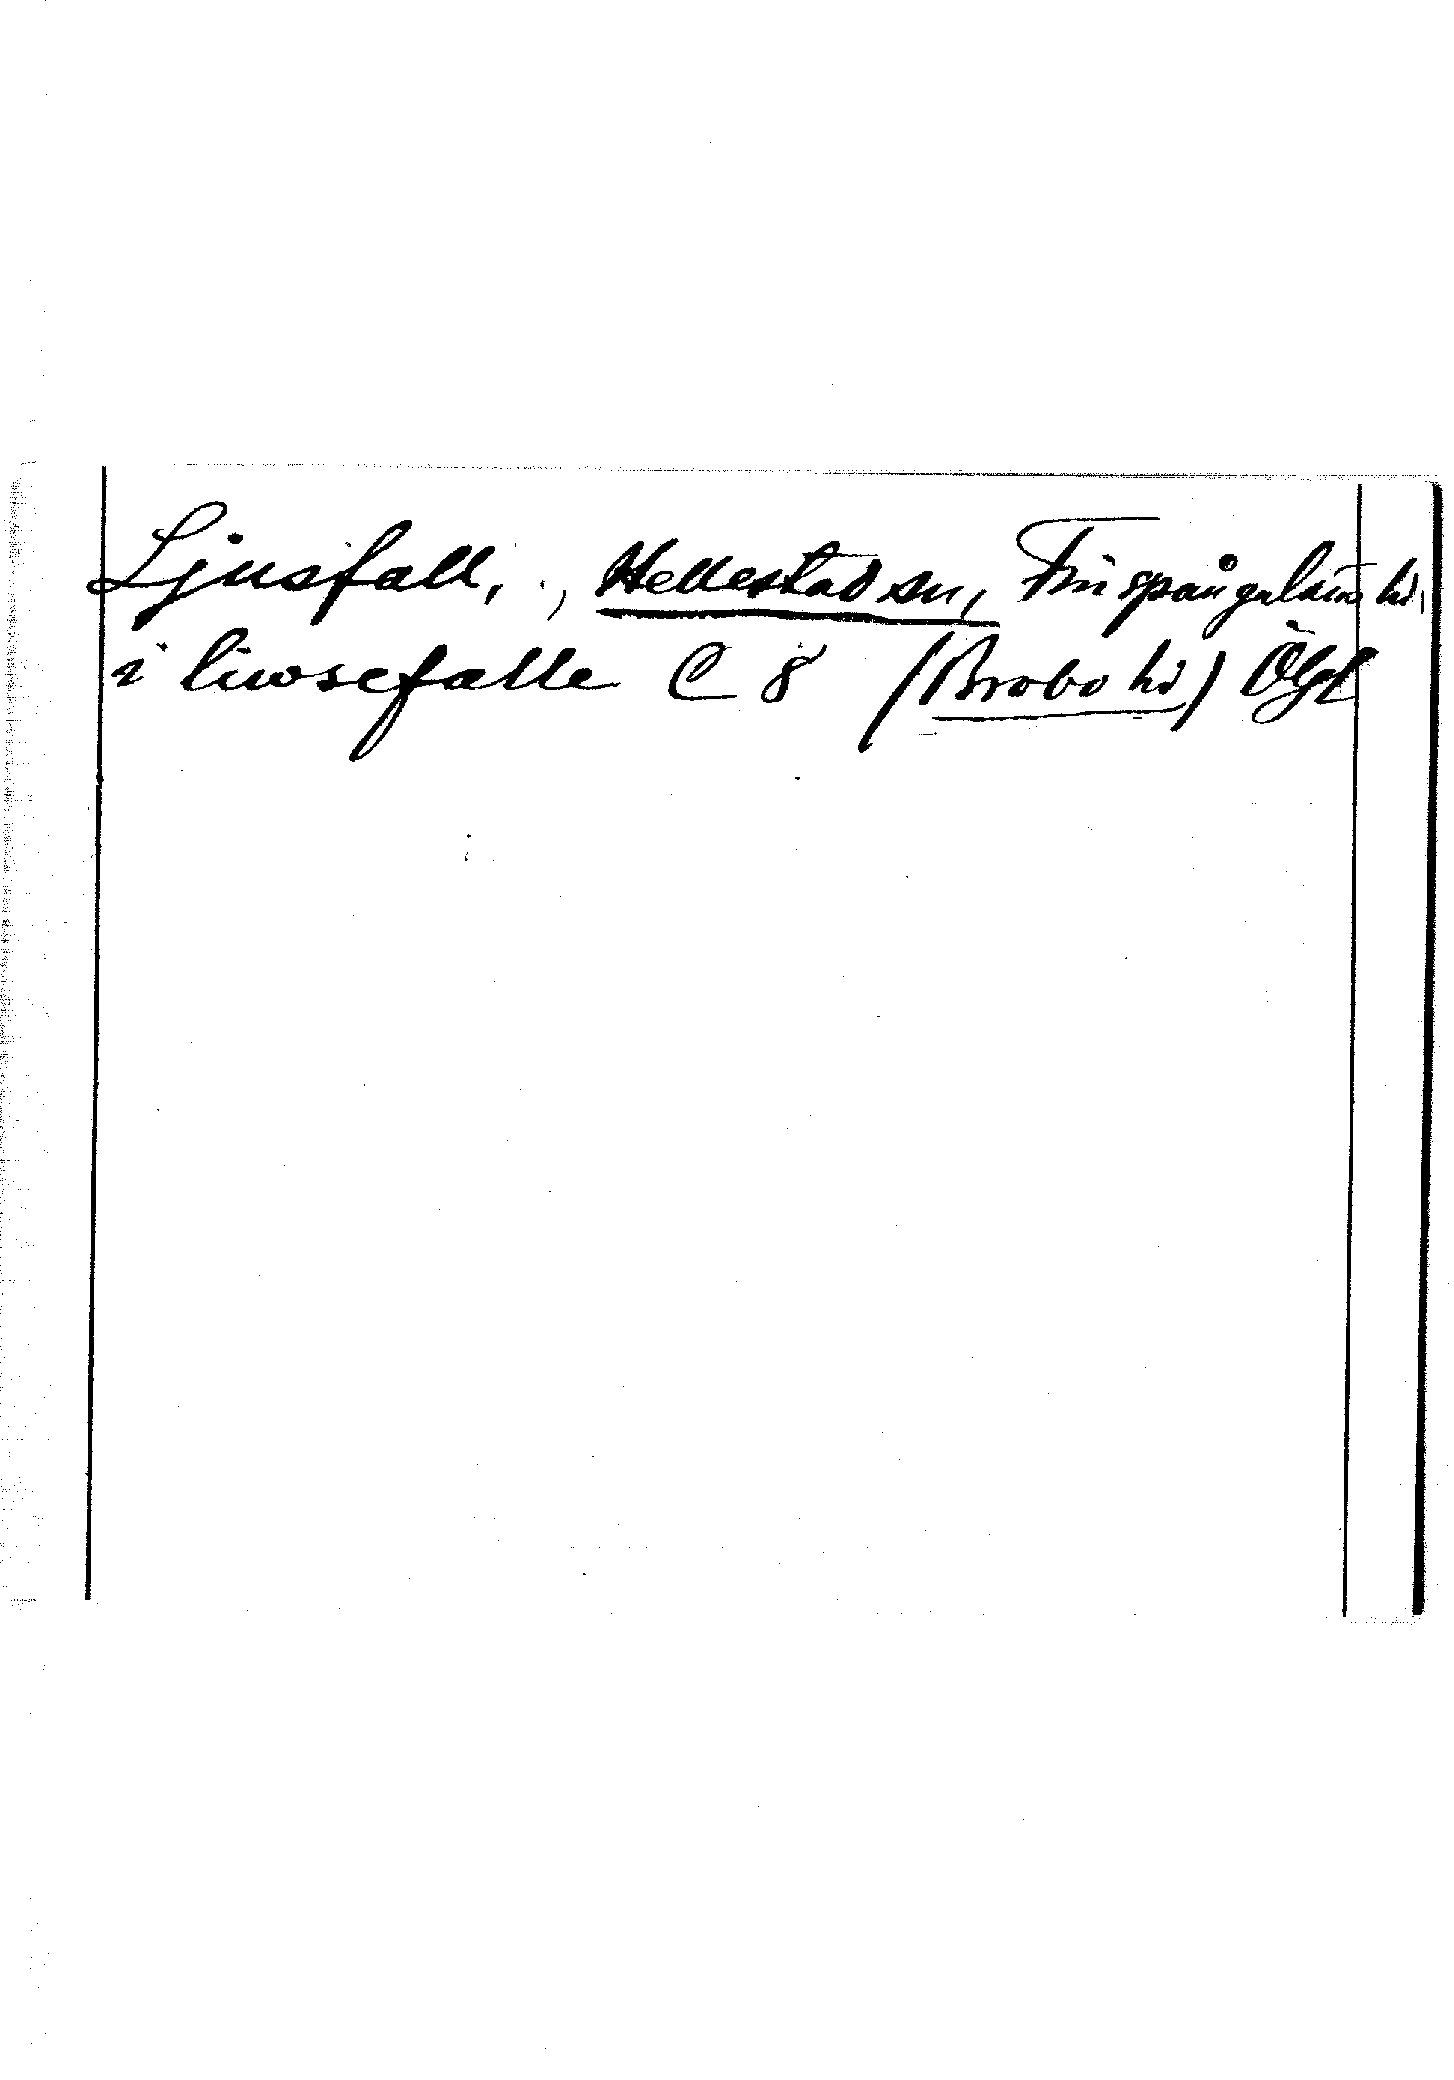 Ljusfall, , Hellestad sn, Finspångaläns hd,
i liwsefalle C 8 (Brobo hd) Ögl